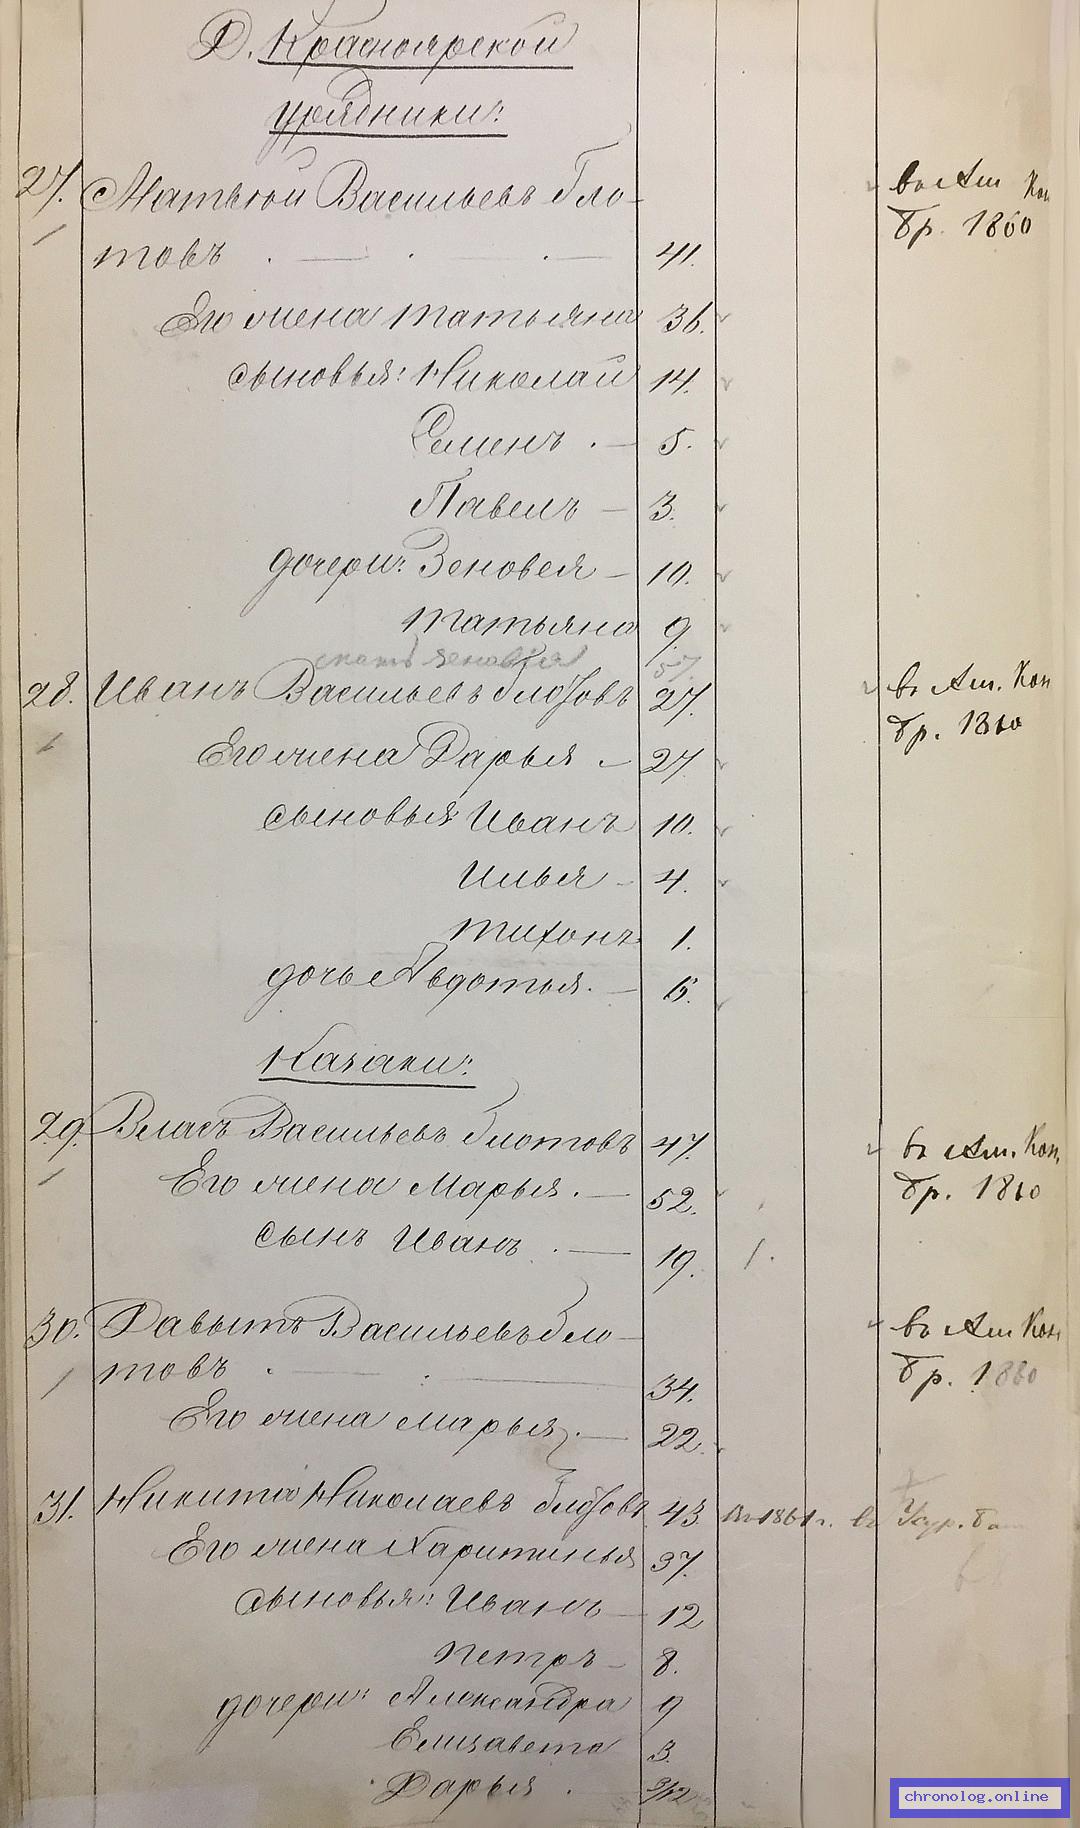 Д. Красноярской
урядники:
27. Матвей Васильевъ Бло-
товъ 41. въ Ам Кон
бр. 1860
Его жена Татьяна 36.
сыновья: Николай 14.
Семенъ 5.
Павелъ 3.
дочери: Зеновея 10.
Татьяна 9
мать Зеновія 57
28. Иванъ Васильевъ Блотовъ 27. въ Ам. Кон
бр. 1860
Его жена Дарья 27.
сыновья Иванъ 10.
Илья 4.
Тихонъ 1.
дочь Авдотья. 6.
Казаки:
29. Власъ Васильевъ Блотовъ 47. въ Ам. Кон.
Его жена Марья. 52. бр. 1860
сынъ Иванъ 19. 1.
30. Давытъ Васильевъ Бло- въ Ам Кон
товъ 34. бр. 1860
Его жена Марья 22.
31. Никита Николаевъ Блотовъ 43. Въ 1861 г. въ Усур. бат
Его жена Харитинья 37.
сыновья: Иванъ 12
Петръ 8.
дочери: Александра 9
Елизавета 3.
Дарья 9/12
chronolog.online